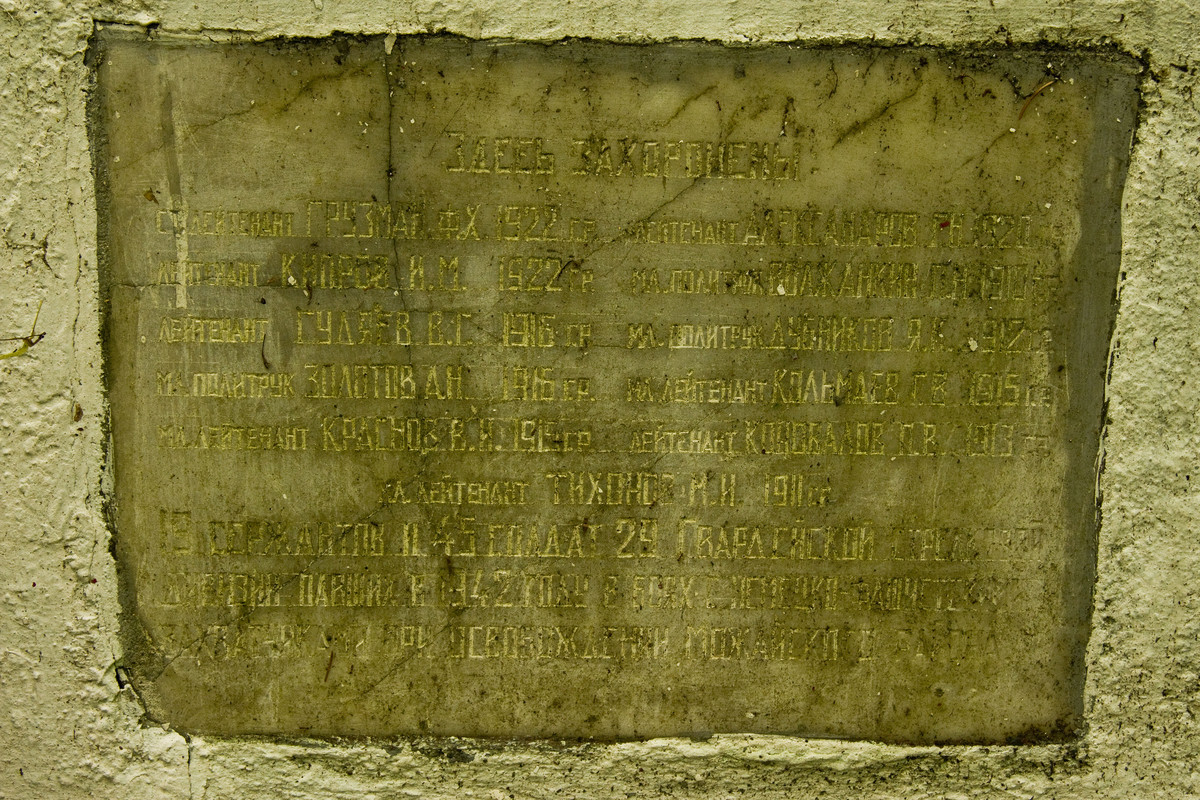 Здесь захоронены
ст. лейтенант Грузман Ф.Х. 1922 г.р. лейтенант Александров Г.Н. 1920 г.р.
лейтенант Кипров И.М. 1922 г.р. мл. политрук Волжанкин 1910 г.р.
лейтенант Гудяев В.Г. 1916 г.р. мл. политрук Дубников Я.К. 1912 г.р.
мл. политрук Золотов А.Н. 1916 г.р. мл. лейтенант Кольмаев Г.В. 1905 г.р.
мл. лейтенант Краснов В.И. 1915 г.р. лейтенант Коновалов П.В. 1913 г.р.
мл. лейтенант Тихонов М.И. 1911 г.р.
19 сержантов и 45 солдат 29 Гвардейской стрелковой
дивизии павших в 1942 году в боях с немецко-фашистскими
захватчиками при освобождении Можайского района